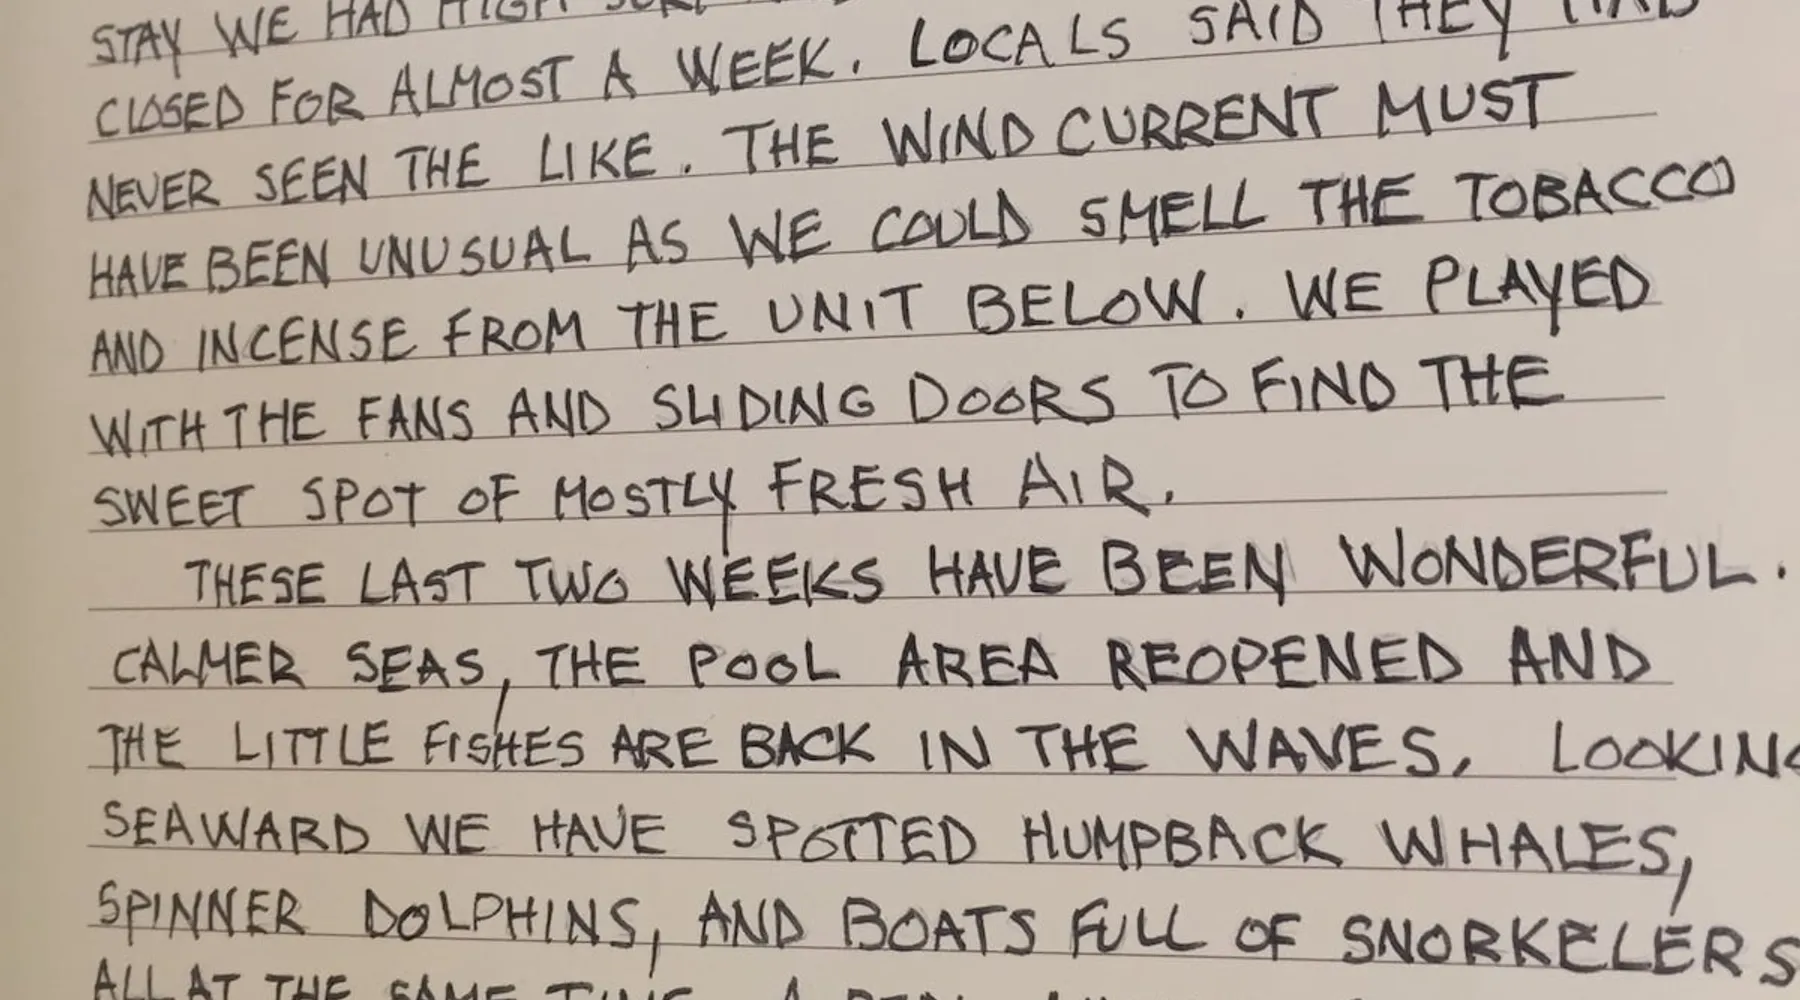 STAY WE HAD HIGH SURF
CLOSED FOR ALMOST A WEEK. LOCALS SAID THEY HAD
NEVER SEEN THE LIKE. THE WIND CURRENT MUST
HAVE BEEN UNUSUAL AS WE COULD SMELL THE TOBACCO
AND INCENSE FROM THE UNIT BELOW. WE PLAYED
WITH THE FANS AND SLIDING DOORS TO FIND THE
SWEET SPOT OF MOSTLY FRESH AIR.
THESE LAST TWO WEEKS HAVE BEEN WONDERFUL.
CALMER SEAS, THE POOL AREA REOPENED AND
THE LITTLE FISHES ARE BACK IN THE WAVES. LOOKING
SEAWARD WE HAVE SPOTTED HUMPBACK WHALES,
SPINNER DOLPHINS, AND BOATS FULL OF SNORKELERS
ALL AT THE SAME TIME. A